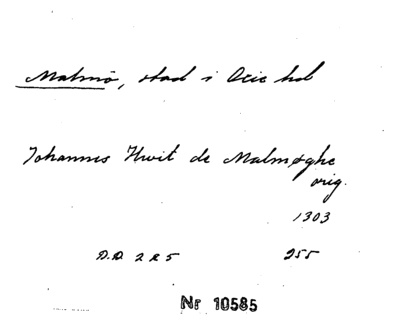 Malmö, stad i Oxie hd
Johannes Hwit de Malmøghe
orig.
1303
D.D. 2 R 5 255
Nr 10585